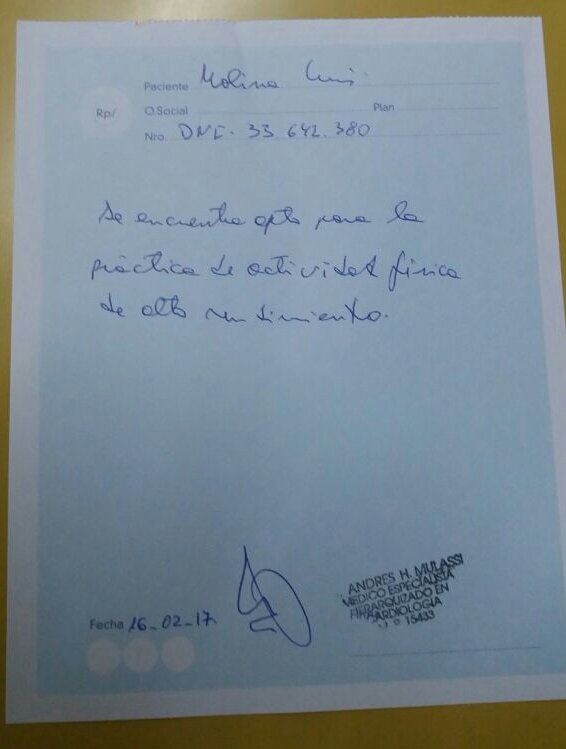 Paciente Molina Luis
Rp/
O.Social Plan
Nro. DNI. 33.642.380
Se encuentra apto para la
práctica de actividad física
de alto rendimiento.
Fecha 16-02-17
ANDRES H. MULASSI
MEDICO ESPECIALISTA
JERARQUIZADO EN
CARDIOLOGIA
15433